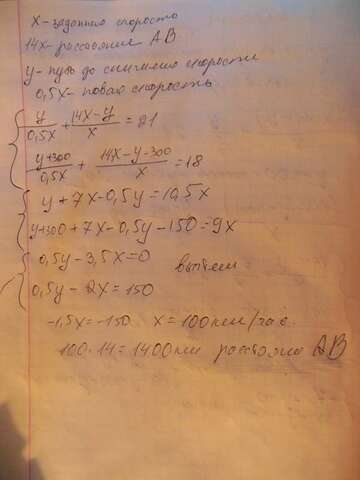 x - заданная скорость
14x - расстояние AB
y - путь до снижения скорости
0,5x - новая скорость
y/0,5x + 14x-y/x = 21
y+300/0,5x + 14x-y-300/x = 18
y + 7x - 0,5y = 10,5x
y+300 + 7x - 0,5y - 150 = 9x
0,5y - 3,5x = 0 вычтем
0,5y - 2x = 150
-1,5x = -150 x = 100 км/час
100·14 = 1400 км расстояние AB